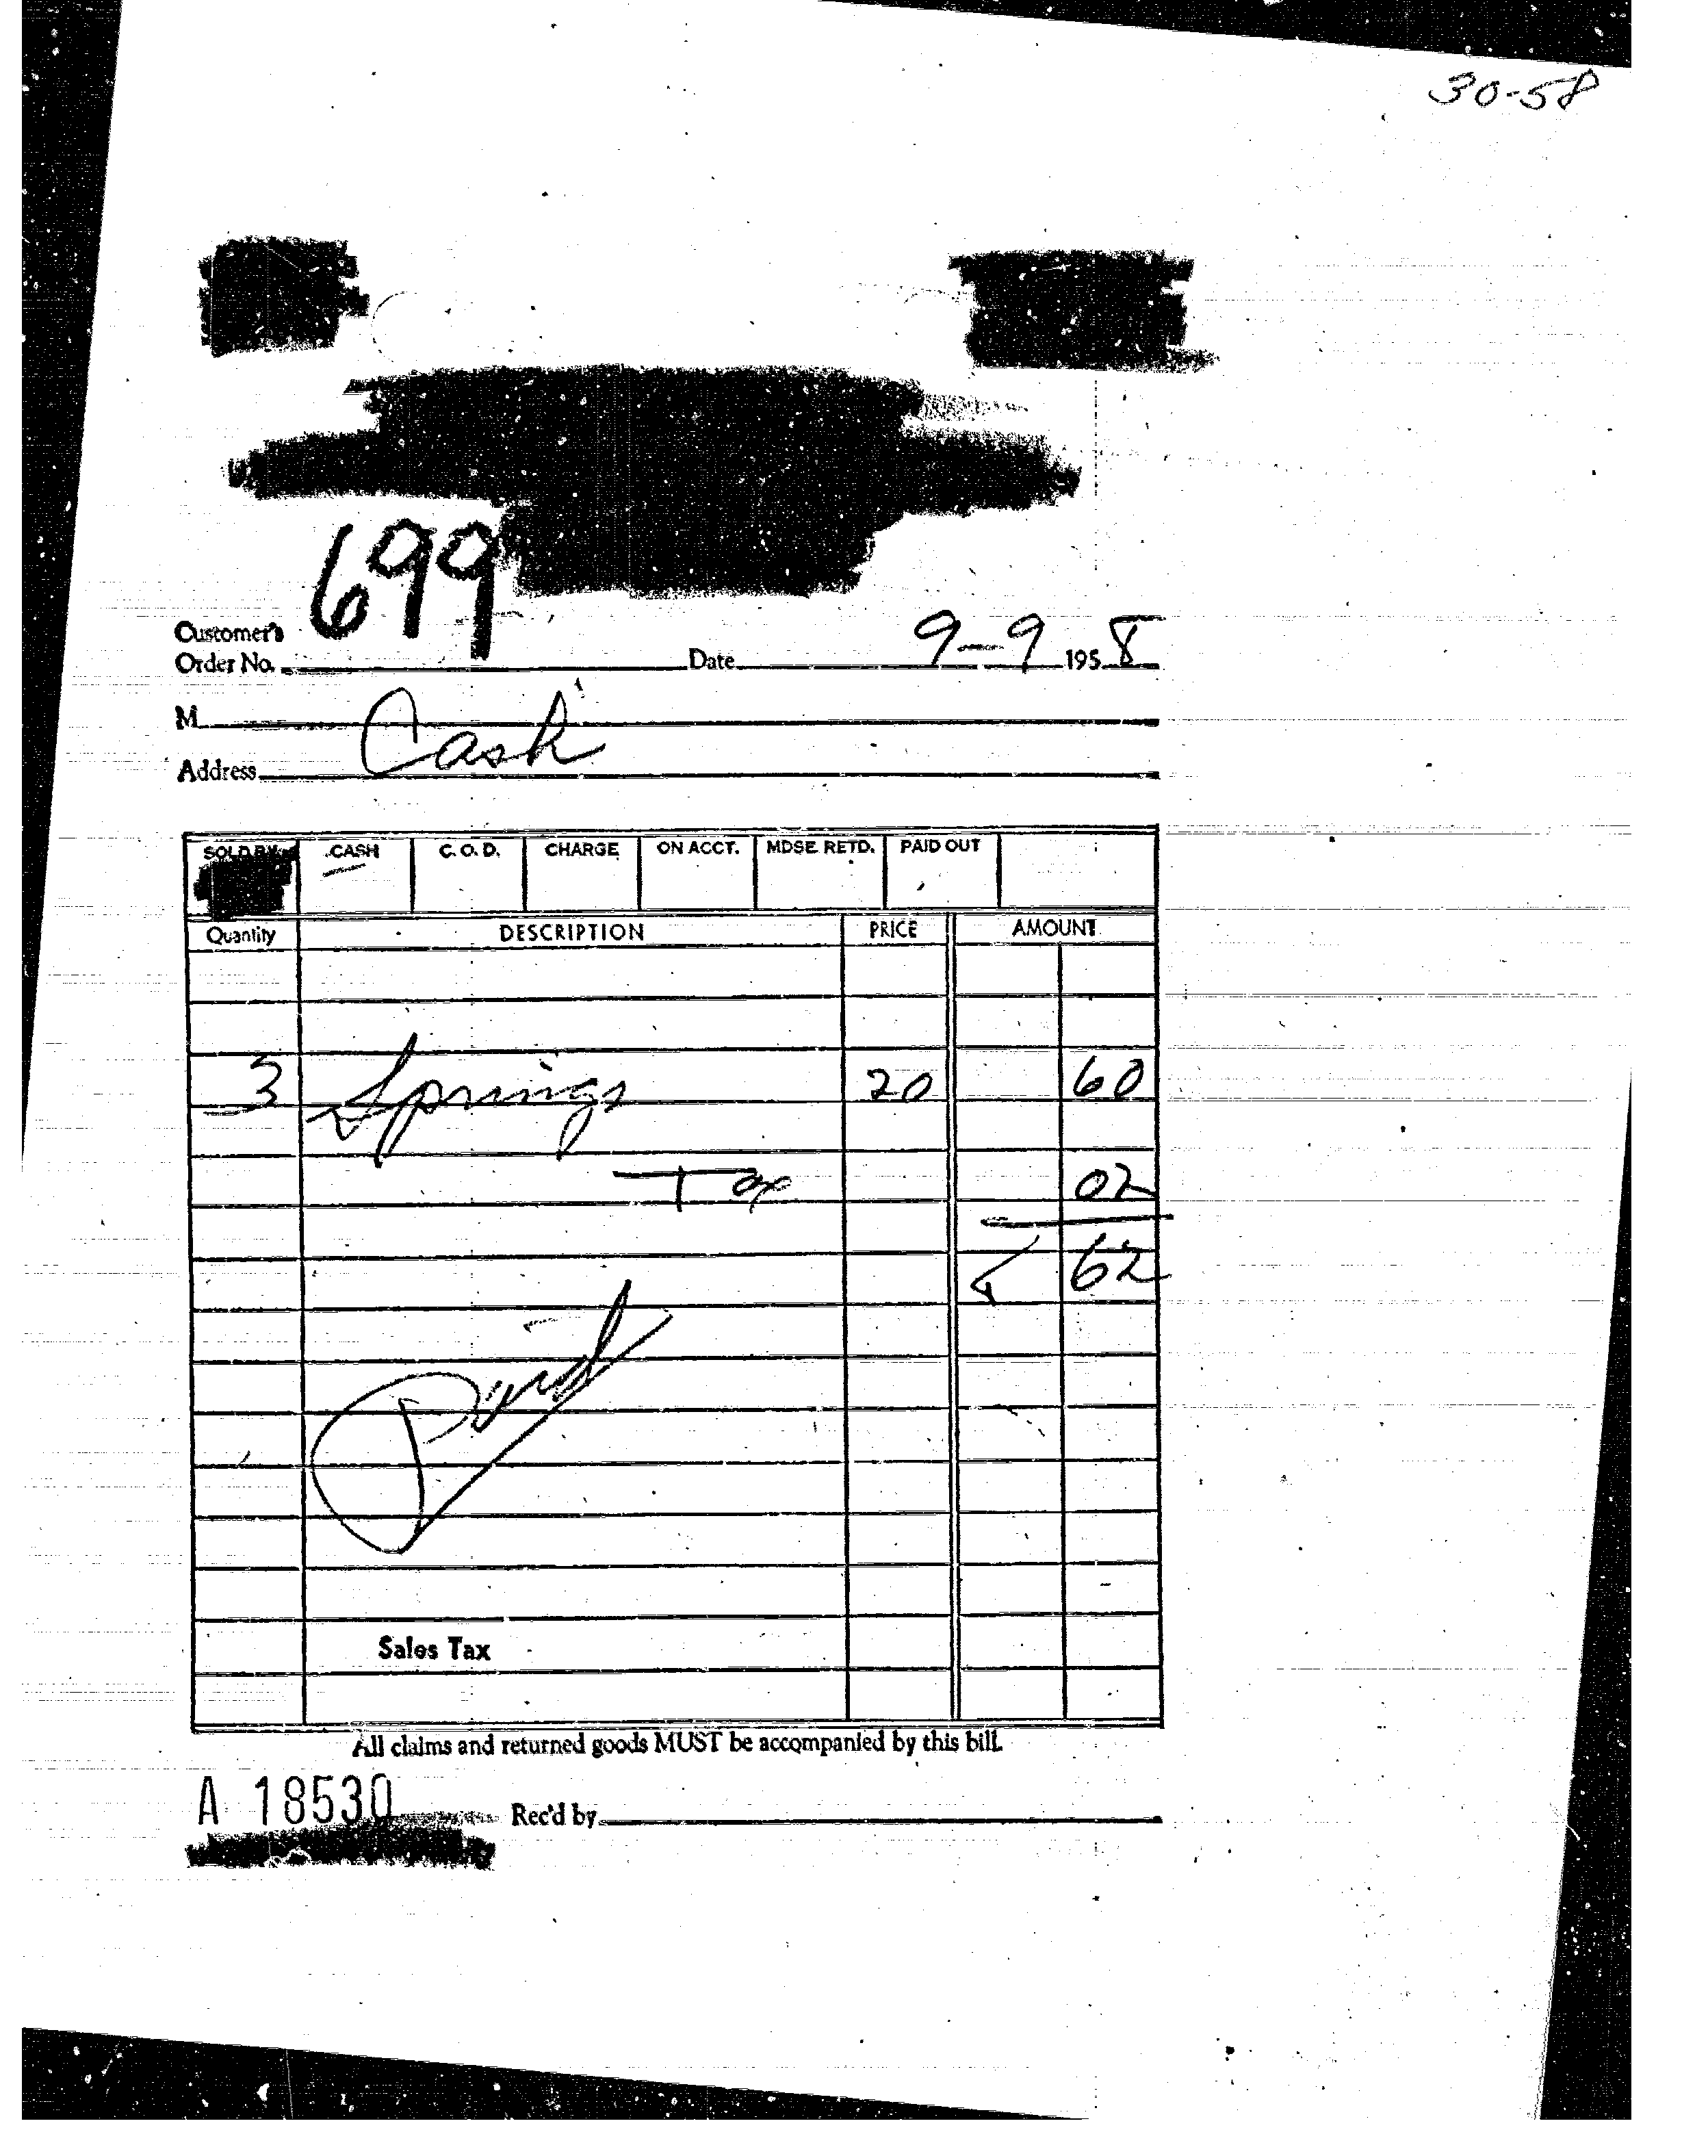 30-58
699
Customer's
Order No. Date 9-9 1958
M
Cash
Address
SOLD BY CASH C.O.D. CHARGE ON ACCT. MDSE. RETD. PAID OUT
Quantity DESCRIPTION PRICE AMOUNT
3 Springs 20 60
Tax 02
62
Paid
Sales Tax
All claims and returned goods MUST be accompanied by this bill.
A 18530 Rec'd by